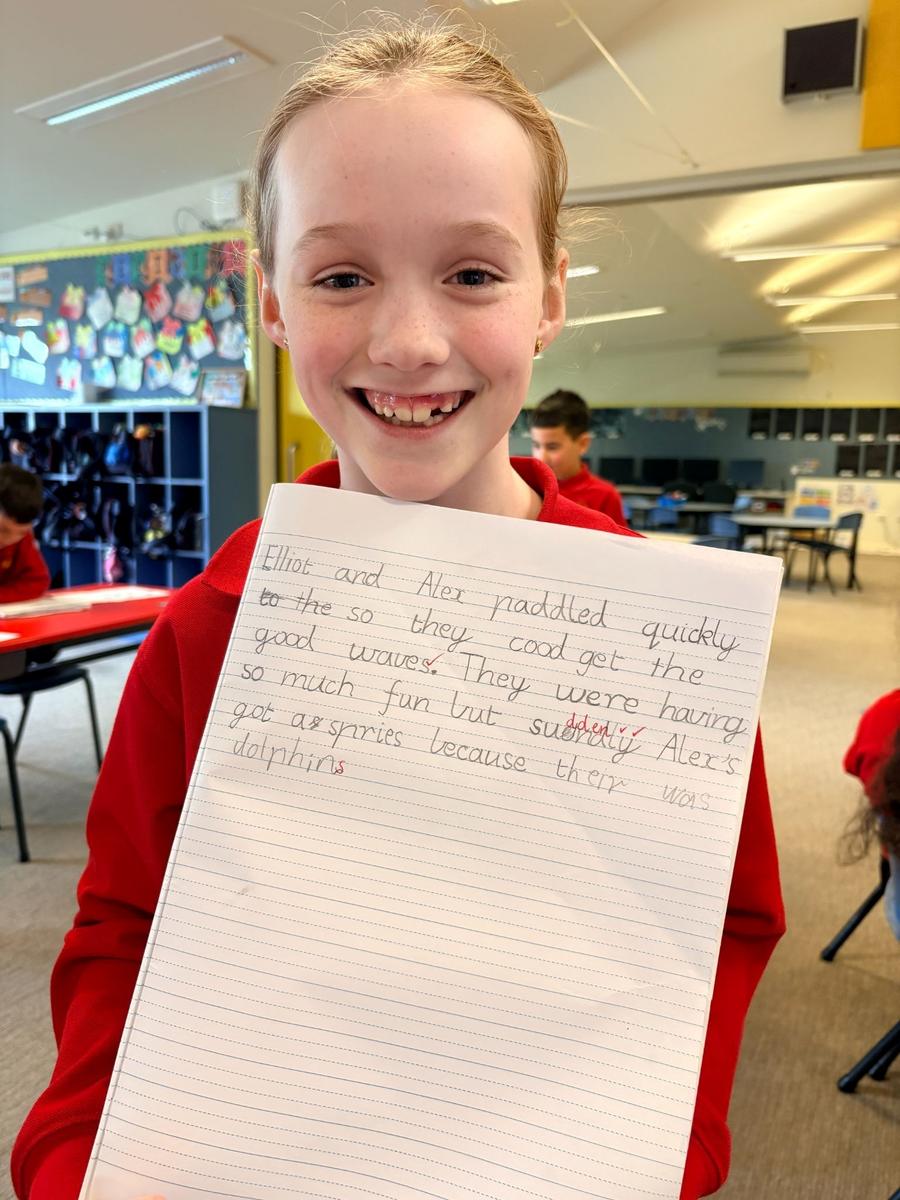 Elliot and Alex paddled quickly
to the so they cood get the
good waves. They were having
so much fun but suendly Alex's
dden
got a spries because therr was
dolphins